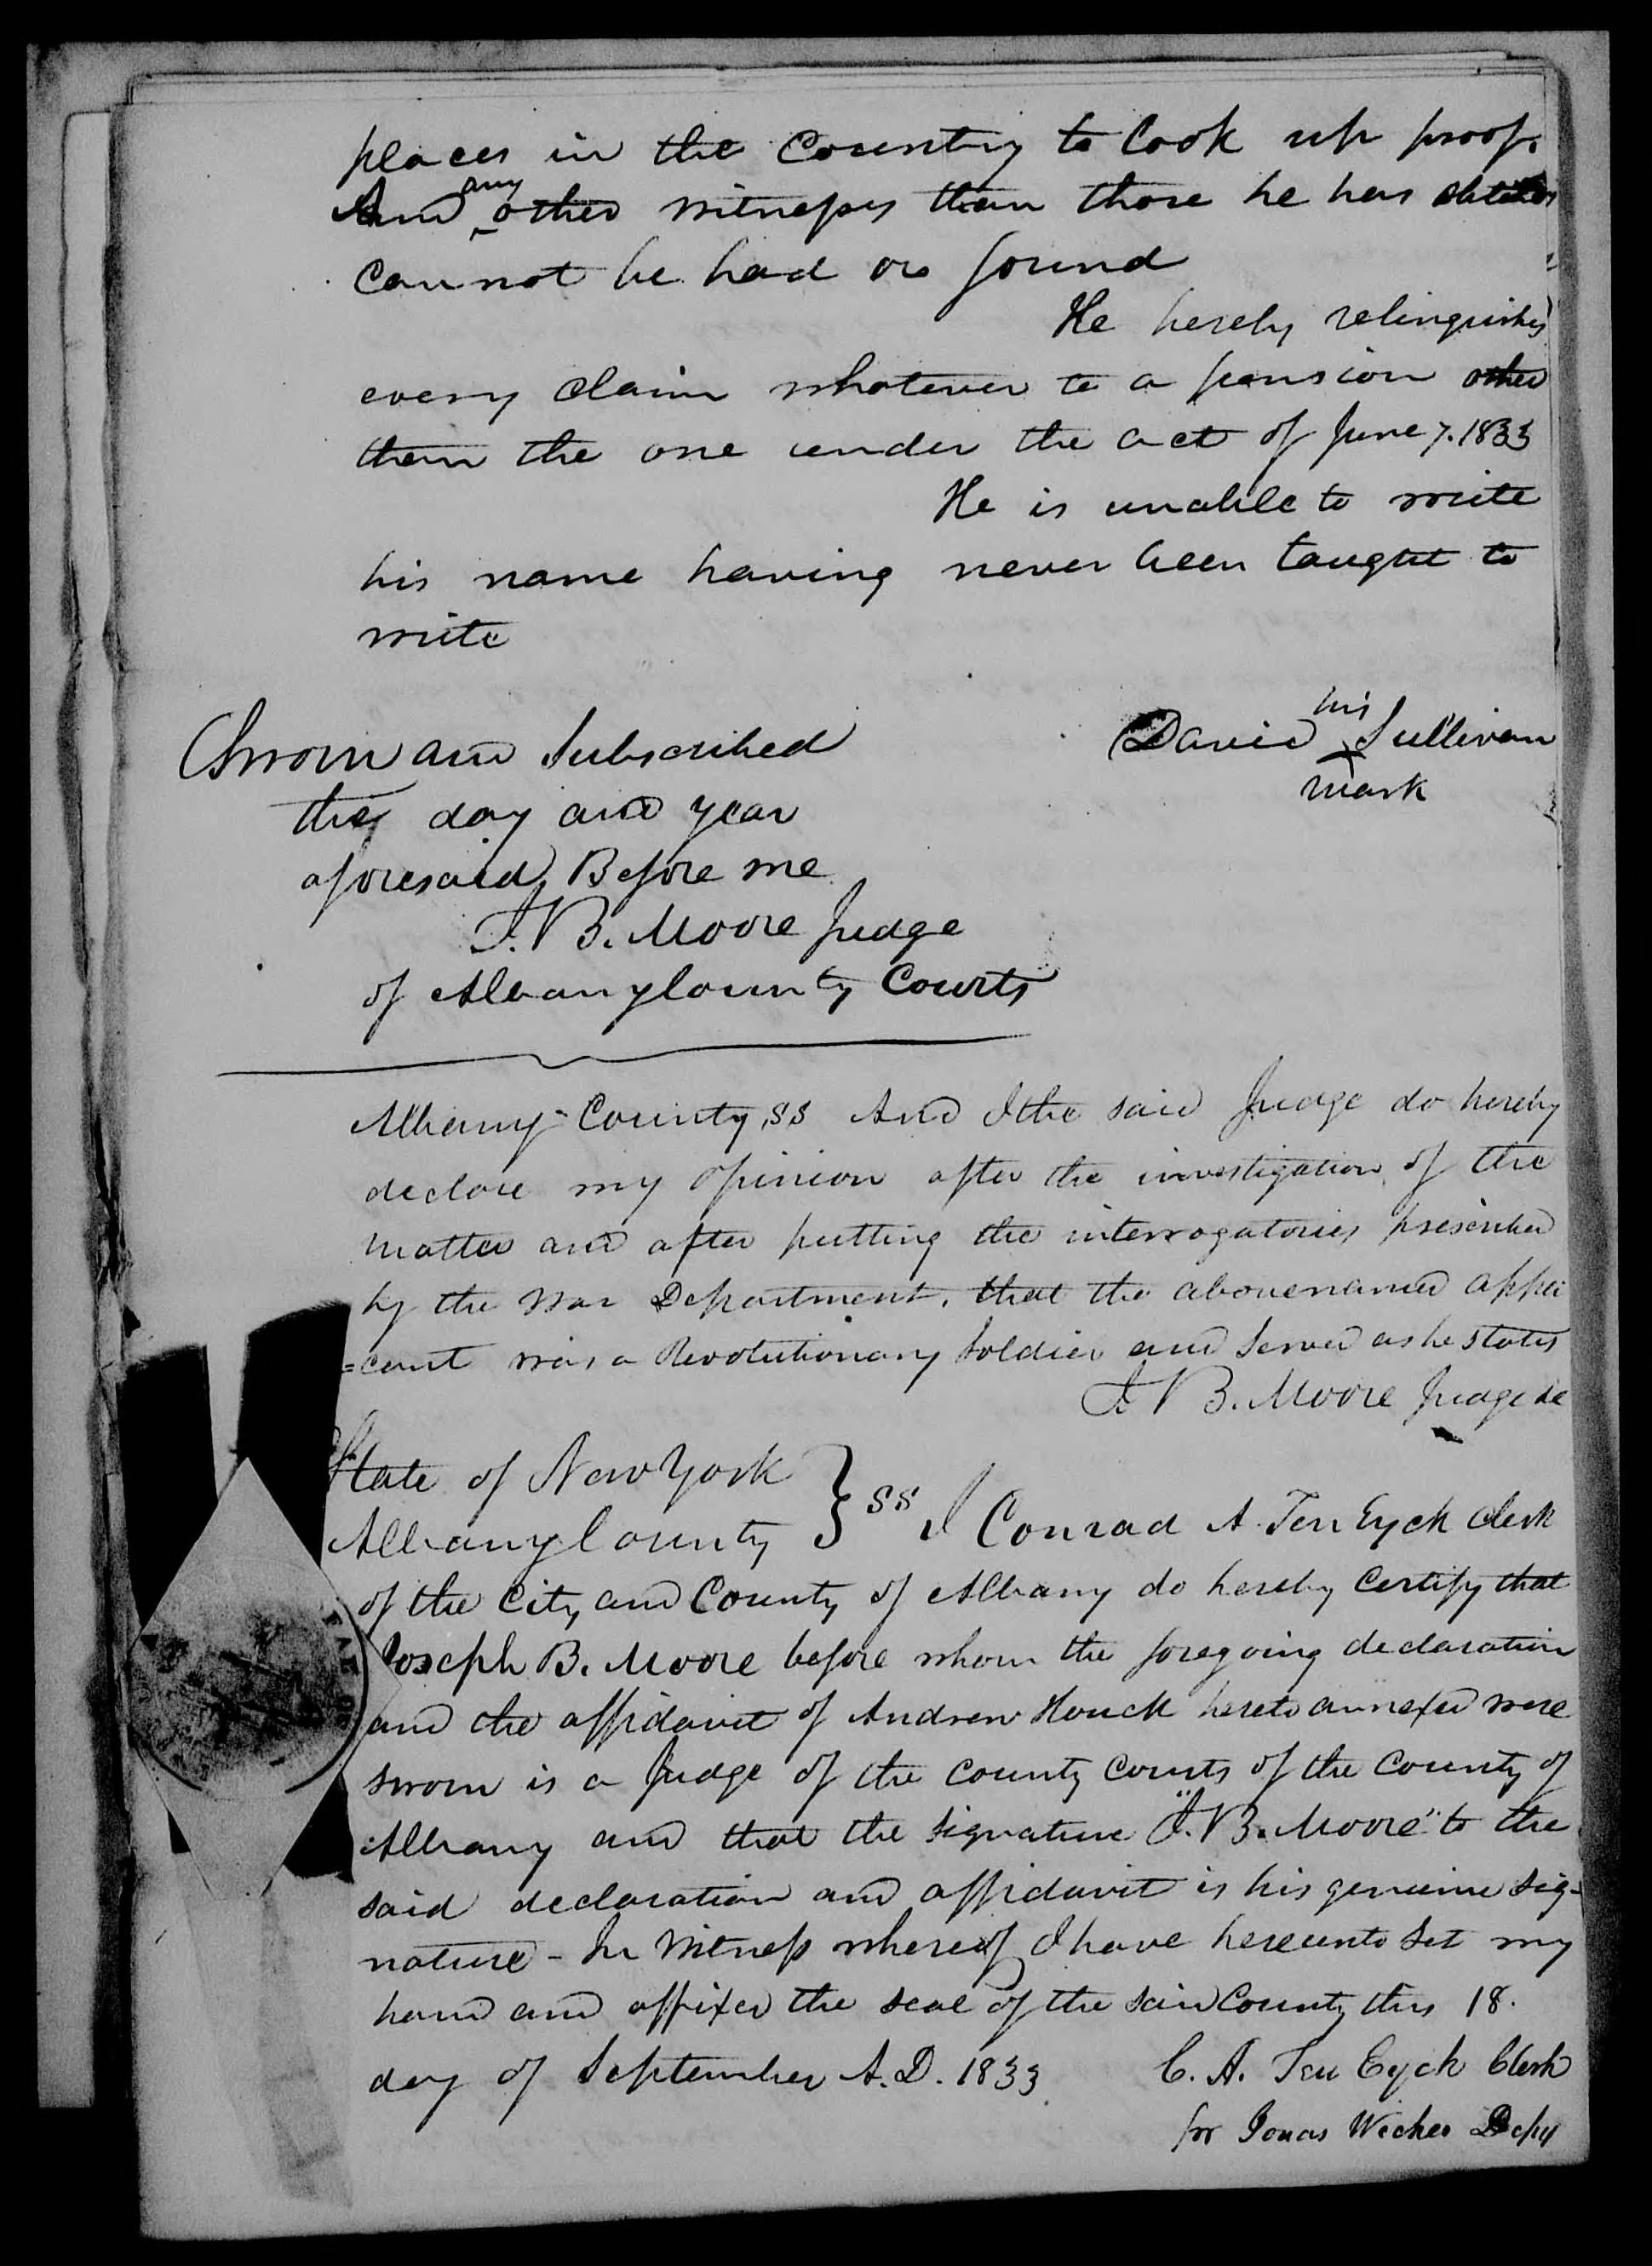 places in the Country to look up proof.
And any other witnesses than those he has
Cannot be had or found
He hereby relinquishes
every claim whatever to a pension other
than the one under the act of June 7. 1833
He is unable to write
his name having never been taught to
write
Sworn and Subscribed
the day and year
aforesaid, Before me
J. B. Moore Judge
of Albany County Courts
David his Sullivan
X
mark
Albany County, SS And I the said Judge do hereby
declare my opinion after the investigation of the
matter and after putting the interrogatories prescribed
by the War Department, that the abovenamed appli
=cant was a Revolutionary Soldier and Served as he states
J. B. Moore Judge &c
State of New York
Albany County } SS I Conrad A. Ten Eyck Clerk
of the City and County of Albany do hereby Certify that
Joseph B. Moore before whom the foregoing declaration
and the affidavit of Andrew Houck hereto annexed were
sworn is a Judge of the County Courts of the County of
Albany and that the signature "J. B. Moore" to the
said declaration and affidavit is his genuine sig-
nature - In Witness whereof I have hereunto Set my
hand and affixed the seal of the said County this 18.
day of September A.D. 1833
C. A. Ten Eyck Clerk
pr Jonas Depy